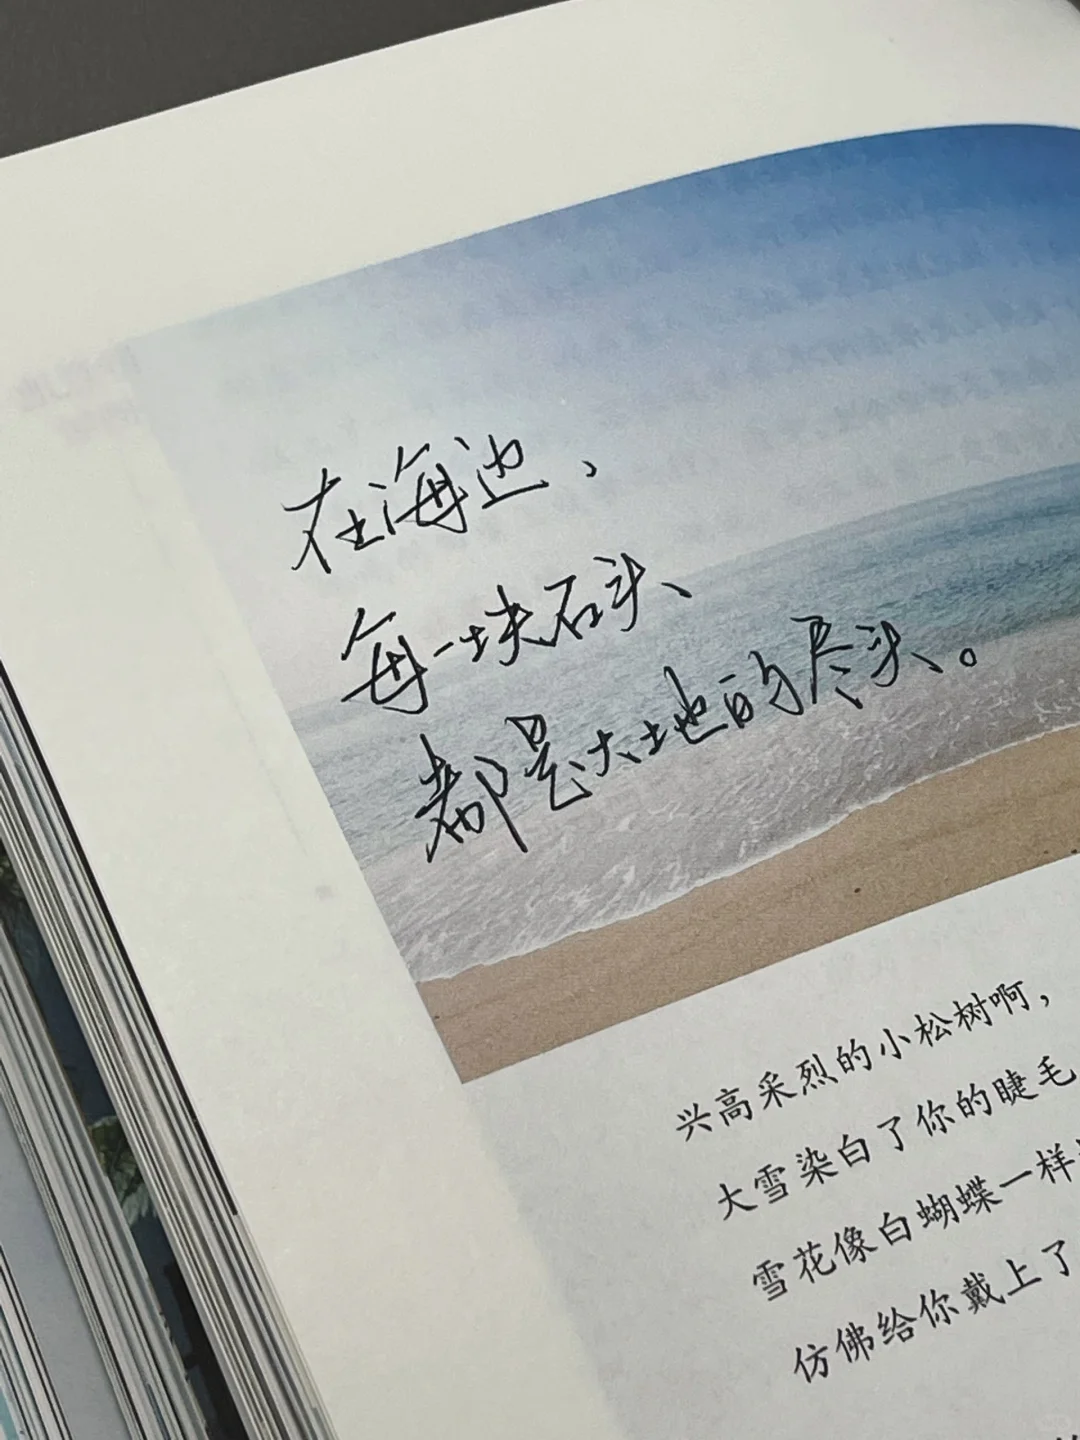 在海边，
每一块石头、
都是大地的尽头。
兴高采烈的小松树啊，
大雪染白了你的睫毛
雪花像白蝴蝶一样
仿佛给你戴上了